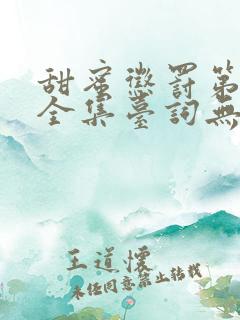 甜蜜懲罰第
全集臺詞無
王道懷
未經同意禁止轉載